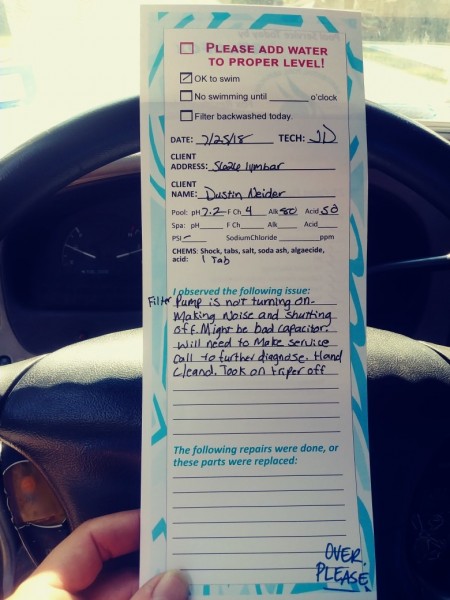 PLEASE ADD WATER
TO PROPER LEVEL!
OK to swim
No swimming until ______ o'clock
Filter backwashed today.
DATE: 7/25/18 TECH: JD
CLIENT
ADDRESS: 5626 lymbar
CLIENT
NAME: Dustin Neider
Pool: pH 7.2 F Ch 4 Alk 80 Acid 50
Spa: pH____ F Ch____ Alk____ Acid____
PSI - SodiumChloride______ppm
CHEMS: Shock, tabs, salt, soda ash, algaecide,
acid: 1 Tab
I observed the following issue:
Filter Pump is not turning on-
Making Noise and shutting
off. Might be bad capacitor.
will need to Make service
call to further diagnose. Hand
Cleand. Took on triper off
The following repairs were done, or
these parts were replaced:
OVER
PLEASE